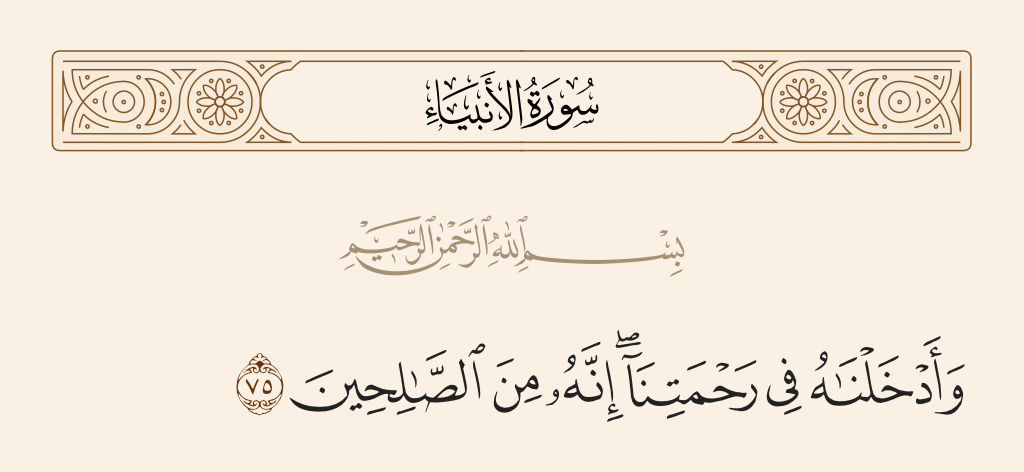 سُورَةُ الأَنبِيَاءِ
بِسْمِ ٱللَّهِ ٱلرَّحْمَٰنِ ٱلرَّحِيمِ
وَأَدْخَلْنَـٰهُ فِى رَحْمَتِنَآ ۖ إِنَّهُۥ مِنَ ٱلصَّـٰلِحِينَ ٧٥